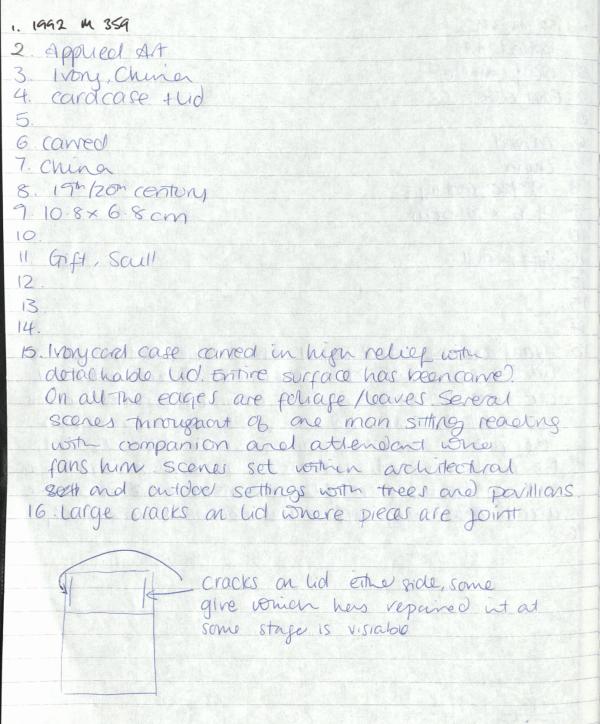 1. 1992 M 359
2. Applied Art
3. Ivory, China
4. cardcase + lid
5.
6. carved
7. China
8. 19th/20th century
9. 10.8 x 6.8 cm
10.
11. Gift, Scull
12.
13
14.
15. Ivory card case carved in high relief with
detachable lid. Entire surface has been carved.
On all the edges are foliage/leaves Several
scenes throughout of one man sitting reading
with companion and attendant who
fans him scenes set within architectural
and outdoor settings with trees and pavillians
16. Large cracks on lid where pieces are joint
cracks on lid eithe side, some
give which has repaired it at
some stage is visiable